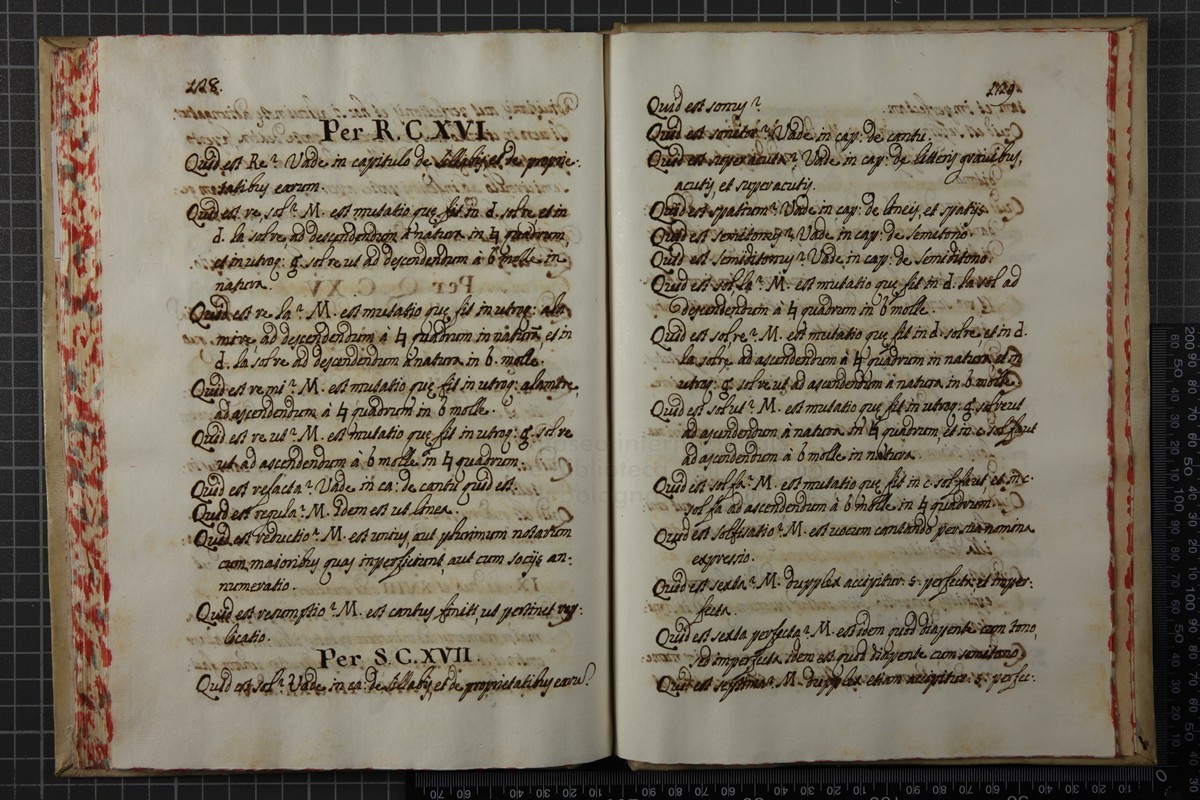 128.
Per R. C. XVI.
Quid est Re? Vade in capitulo de sillabis, et de proprie-
tatibus earum.
Quid est re, sol? M. est mutatio que fit in d. sol re et in
d. la sol re ad descendendum à natura in ♮ quadrum,
et in utroq: g. sol re ut ad descendendum à b molle in
natura.
Quid est re la? M. est mutatio que fit in utroq: a la
mi re ad descendendum à ♮ quadrum in natura et in
d. la sol re ad descendendum à natura in b. molle.
Quid est re mi? M. est mutatio que fit in utroq: a la mi re,
ad ascendendum à ♮ quadrum in b molle.
Quid est re ut? M. est mutatio que fit in utroq: g. sol re
ut ad ascendendum à b molle in ♮ quadrum.
Quid est refacta? Vade in ca: de cantu quid est.
Quid est regula? M. Idem est ut linea.
Quid est reductio? M. est unius, aut plurimum notarum
cum maioribus quas imperficiunt, aut cum socijs an-
numeratio.
Quid est resumptio? M. est cantus finiti, ut pertinet rep:
licatio.
Per S. C. XVII.
Quid est sol? Vade in ca: de sillabis, et de proprietatibus earu?
129.
Quid est sonus?
Quid est sonitor? Vade in cap: de cantu.
Quid est superacuta? Vade in cap: de litteris gravibus,
acutis, et superacutis.
Quid est spatium? Vade in cap: de lineis, et spatijs.
Quid est semitonus? Vade in cap: de Semitono.
Quid est semiditonus? Vade in cap: de semiditono.
Quid est sol la? M. est mutatio que fit in d. la sol ad
descendendum à ♮ quadrum in b molle.
Quid est sol re? M. est mutatio que fit in d. sol re et in d.
la sol re ad ascendendum à ♮ quadrum in natura et in
utroq: g. sol re ut ad ascendendum à natura in b molle.
Quid est sol ut? M. est mutatio que fit in utroq: g. sol re ut
ad ascendendum à natura in ♮ quadrum, et in c. sol fa ut
ad ascendendum à b molle in natura.
Quid est sol fa? M. est mutatio que fit in c. sol fa ut et in c.
sol fa ad ascendendum à b molle in ♮ quadrum.
Quid est solfisatio? M. est vocum cantando per sua nomina
expressio.
Quid est sexta? M. dupplex accipitur. s. perfecta, et imper-
fecta.
Quid est sexta perfecta? M. est idem quod diapente cum tono,
sed imperfecta idem est quod diapente cum semitono.
Quid est septima? M. dupplex etiam accipitur. s. perfec-